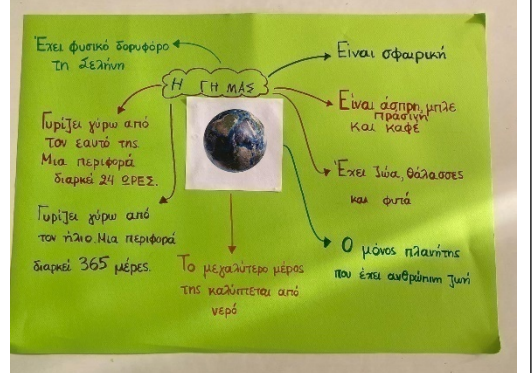 Η ΓΗ ΜΑΣ
Έχει φυσικό δορυφόρο
τη Σελήνη
Γυρίζει γύρω από
τον εαυτό της.
Μια περιφορά
διαρκεί 24 ΩΡΕΣ.
Γυρίζει γύρω από
τον ήλιο. Μια περιφορά
διαρκεί 365 μέρες.
Το μεγαλύτερο μέρος
της καλύπτεται από
νερό
Είναι σφαιρική
Είναι άσπρη, μπλε
πράσινη
και καφέ
Έχει ζώα, θάλασσες
και φυτά
Ο μόνος πλανήτης
που έχει ανθρώπινη ζωή